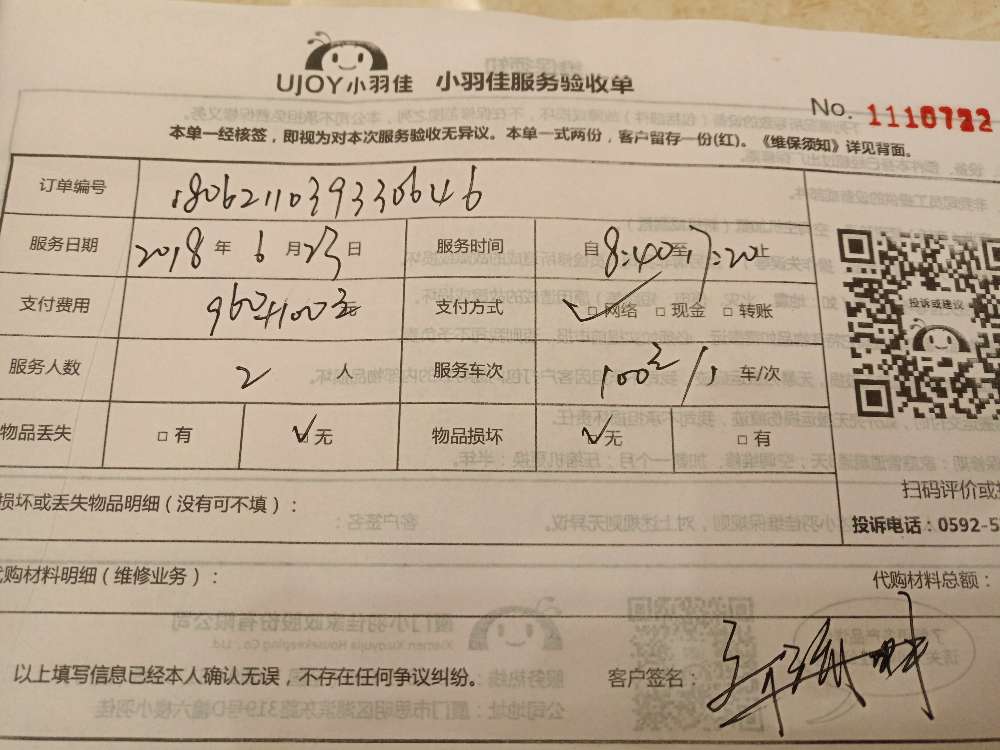 UJOY小羽佳 小羽佳服务验收单
No. 1110722
本单一经核签，即视为对本次服务验收无异议。本单一式两份，客户留存一份(红)。《维保须知》详见背面。
订单编号 1806211039330646
服务日期 2018 年 6 月 23 日 服务时间 自 8:40 至 17:20 止
支付费用 960+100元 支付方式 ✓□网络 □现金 □转账
投诉或建议
服务人数 2 人 服务车次 100元/1 车/次
物品丢失 □有 ✓□无 物品损坏 ✓□无 □有
扫码评价或
损坏或丢失物品明细（没有可不填）：
投诉电话：0592-5
代购材料明细（维修业务）： 代购材料总额：
以上填写信息已经本人确认无误，不存在任何争议纠纷。 客户签名：